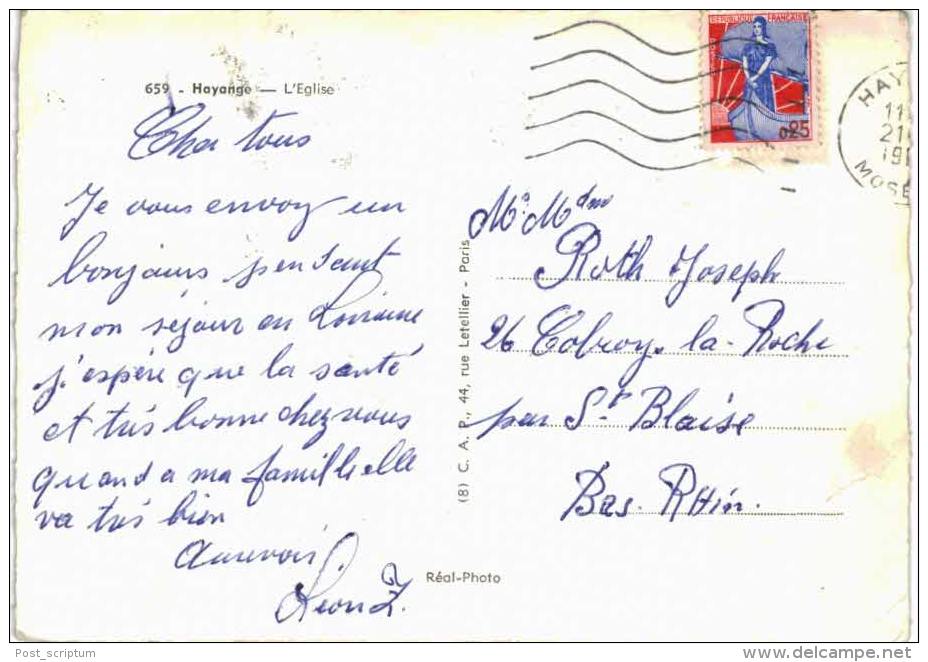 659 - Hayange — L'Eglise
Cher tous
Je vous envoy un
bonjours pendant
mon séjour en Lorraine
j'espère que la santé
et trés bonne chez vous
quand a ma famille elle
va trés bien
Aurevoir
Léon Z.
REPUBLIQUE FRANÇAISE
0,25
HAY
11
21
19
MOSE
Mr. Mdm
Roth Joseph
26 Colroy-la-Roche
par St Blaise
Bas. Rhin.
(8) C. A. P., 44, rue Letellier - Paris
Réal-Photo
Post_scriptum
delcampe.net